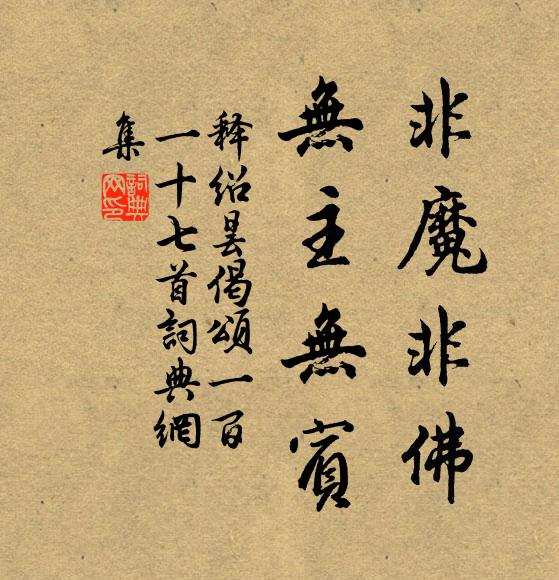 非魔非佛
無主無賓
释绍昙偈頌一百
一十七首詞典網
集
詞典网印